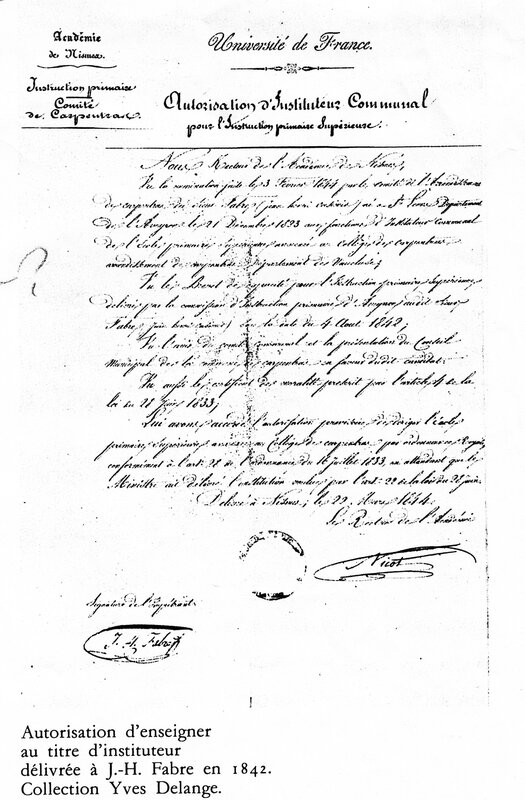 Académie
de Nismes
Université de France.
Instruction primaire
Comité
de Carpentras
Autorisation d'Instituteur Communal
pour l'Instruction primaire Supérieure.
Nous Recteur de l'Académie de Nismes,
Vu la nomination faite le 3 février 1844 par le comité de l'Arrondissement
de carpentras du Sieur Fabre (jean henri casimir) né à St Léons Département
de l'Aveyron le 21 Décembre 1823 aux fonctions d'Instituteur Communal
de l'école primaire Supérieure annexée au Collège de carpentras
arrondissement de carpentras Département de Vaucluse;
Vu le Brevet de capacité pour l'Instruction primaire Supérieure
délivré par la commission d'Instruction primaire d'Avignon audit Sieur
Fabre (jean henri casimir) sous la date du 4 Aout 1842;
Vu l'avis du comité communal et la présentation du Conseil
Municipal de la de carpentras en faveur dudit candidat.
Vu aussi le certificat de moralité prescrit par l'article 4 de la
loi du 28 juin 1833;
Lui avons accordé l'autorisation provisoire de diriger l'école
primaire Supérieure annexée au Collège de carpentras par ordonnance Royale,
conformément à l'art. 28 de l'ordonnance du 16 juillet 1833, en attendant que le
Ministre ait délivré l'institution voulue par l'art. 22 de la loi du 28 juin.
Délivré à Nismes, le 29 Mars 1844.
Le Recteur de l'Académie
Nicot
Signature de l'Impétrant
J. H. Fabre
Autorisation d'enseigner
au titre d'instituteur
délivrée à J.-H. Fabre en 1842.
Collection Yves Delange.